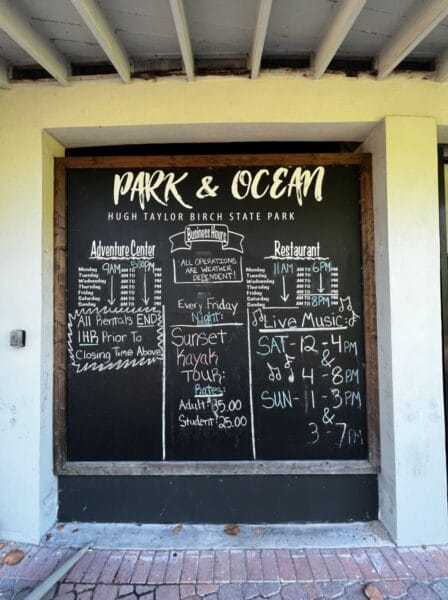 PARK & OCEAN
HUGH TAYLOR BIRCH STATE PARK
Business Hours
*ALL OPERATIONS ARE WEATHER DEPENDENT!
Adventure Center
Monday 9AM AM TO PM
Tuesday AM TO PM
Wednesday AM TO PM
Thursday AM TO PM
Friday AM TO PM
Saturday AM TO PM
Sunday AM TO PM
All Rentals END
1HR Prior To
Closing Time Above
Every Friday
Night:
Sunset
Kayak
Tour:
Rates:
Adult $35.00
Student $25.00
Restaurant
Monday 11AM AM TO 6PM PM
Tuesday AM TO PM
Wednesday AM TO PM
Thursday AM TO PM
Friday AM TO PM
Saturday AM TO PM
Sunday AM TO 8PM PM
Live Music:
SAT- 12-4PM
&
4-8PM
SUN- 1-3PM
&
3-7PM